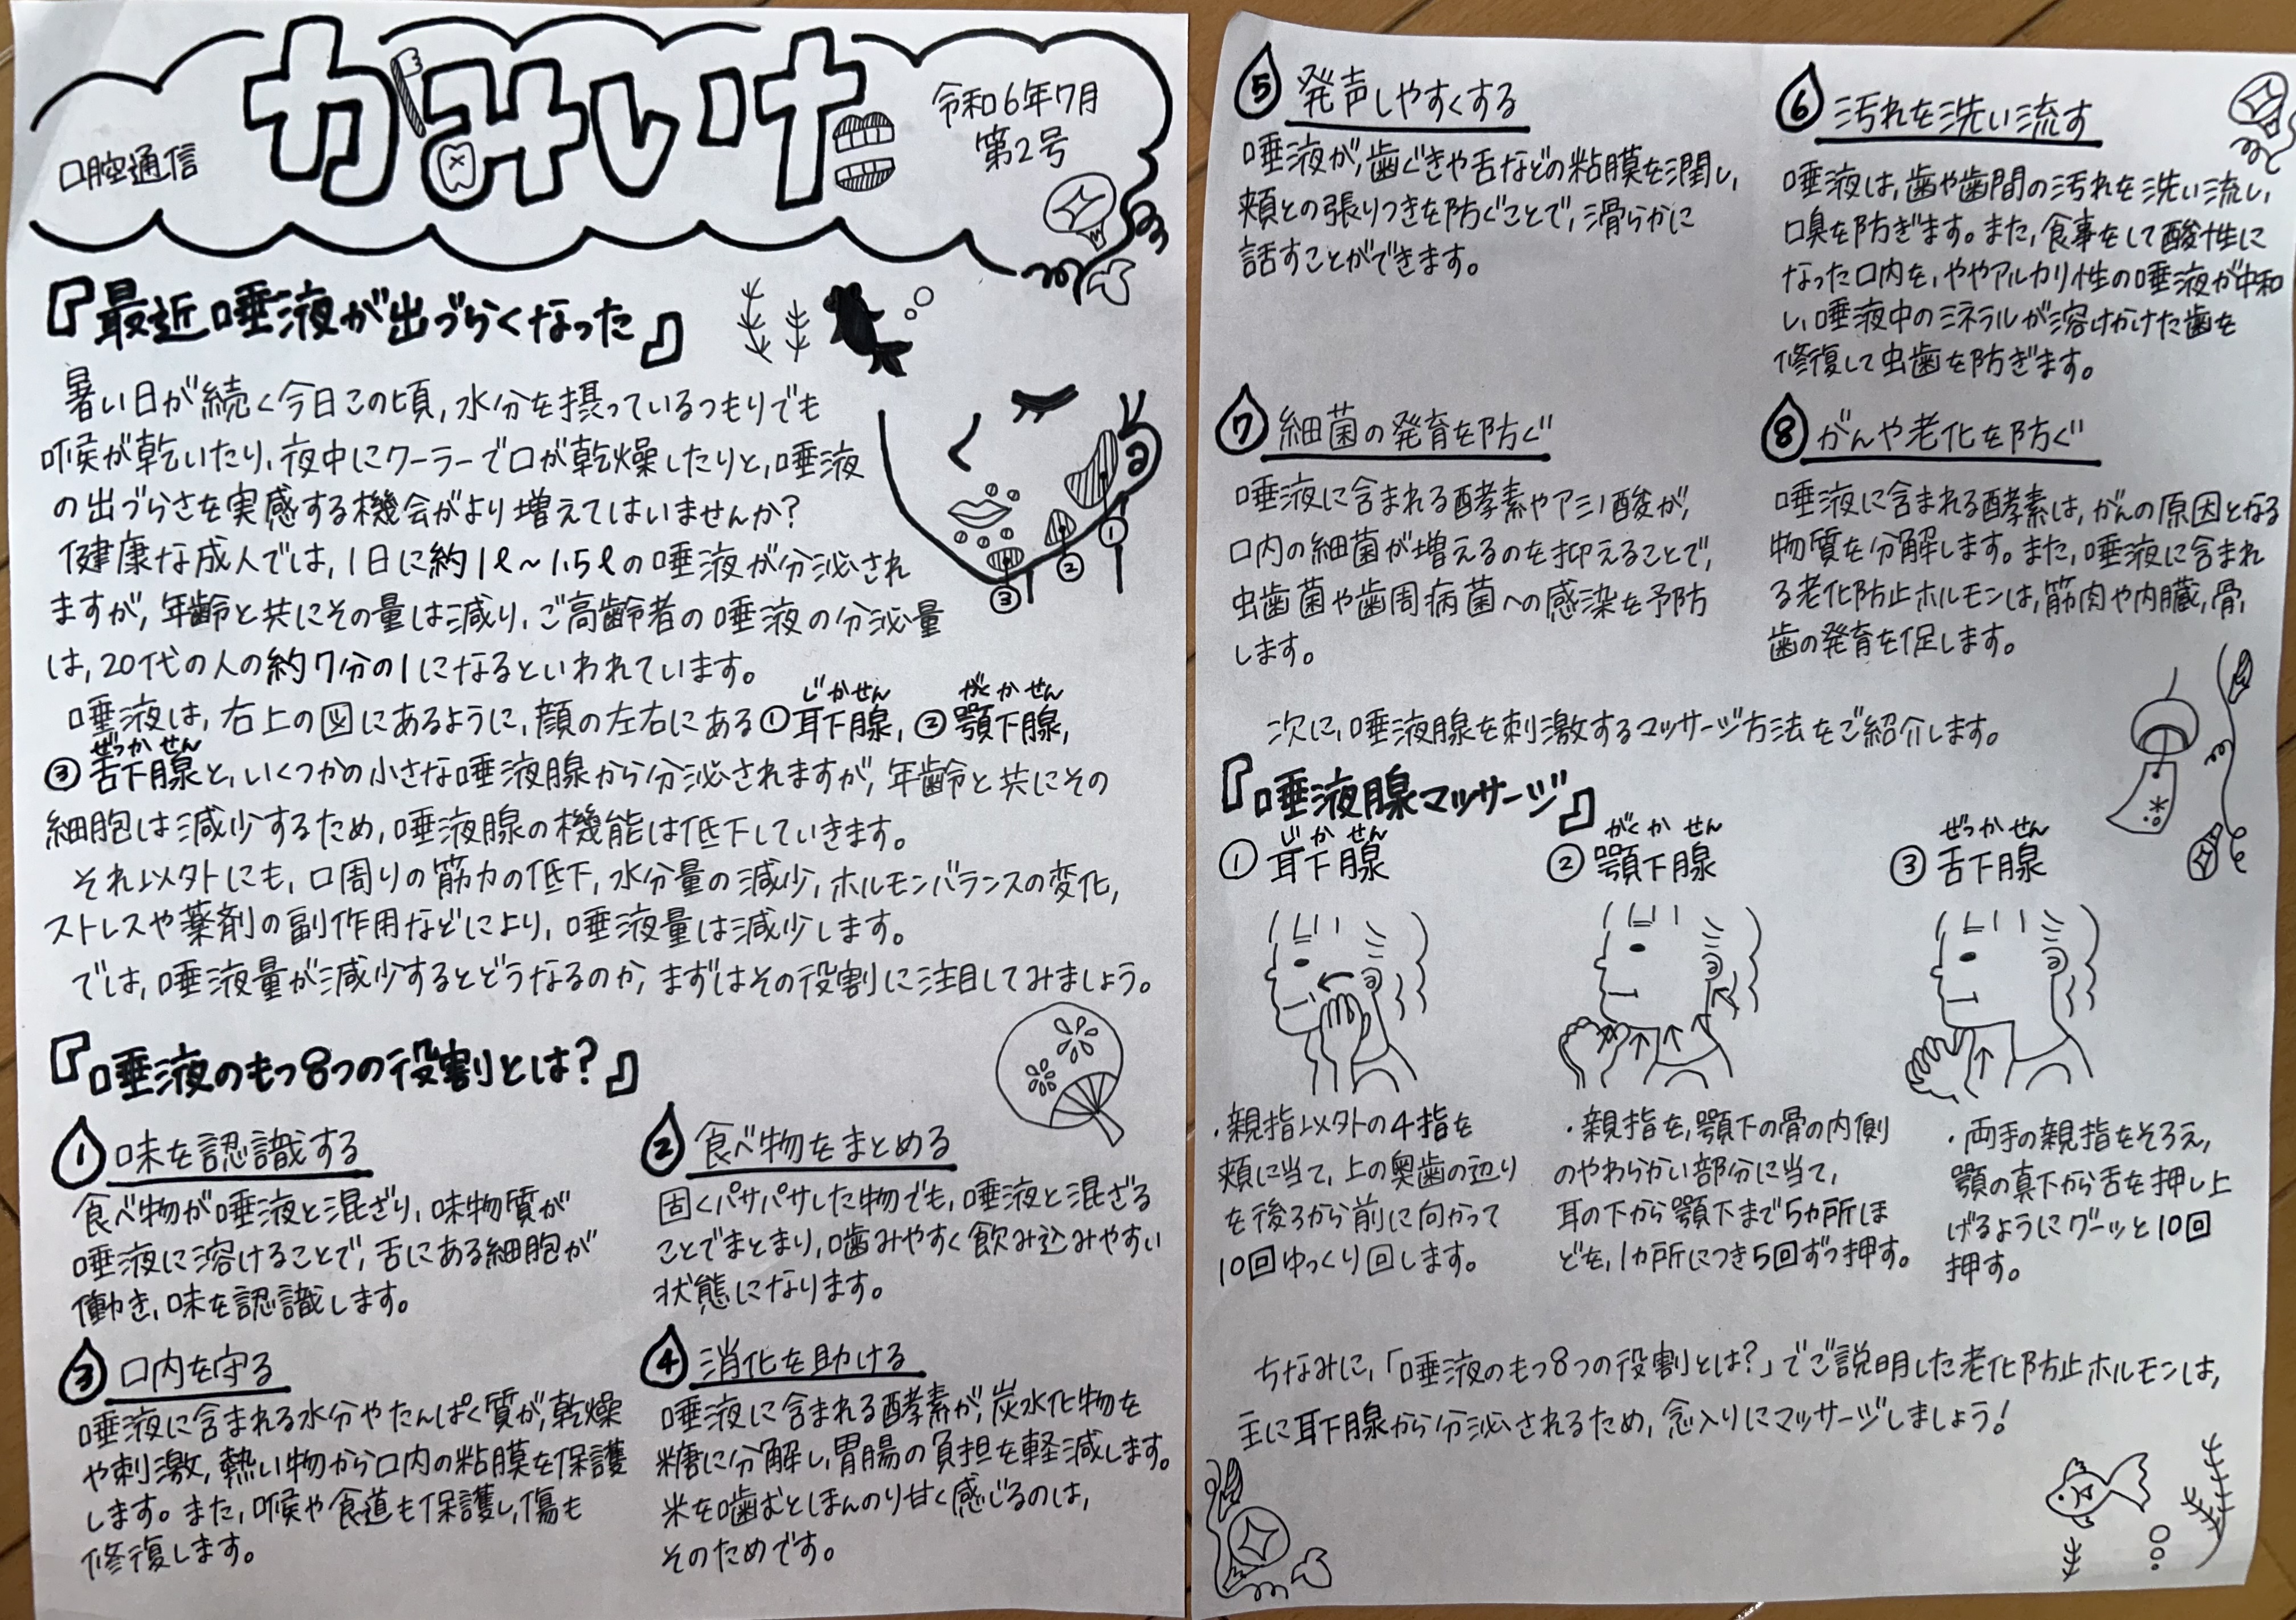 口腔通信
かみいけ
令和6年7月
第2号
『最近唾液が出づらくなった』
暑い日が続く今日この頃,水分を摂っているつもりでも
喉が乾いたり,夜中にクーラーで口が乾燥したりと,唾液
の出づらさを実感する機会がより増えてはいませんか?
健康な成人では,1日に約1ℓ~1.5ℓの唾液が分泌され
ますが,年齢と共にその量は減り,ご高齢者の唾液の分泌量
は,20代の人の約7分の1になるといわれています。
唾液は,右上の図にあるように,顔の左右にある①耳下腺,②顎下腺,
じかせん
がくかせん
③舌下腺と,いくつかの小さな唾液腺から分泌されますが,年齢と共にその
ぜっかせん
細胞は減少するため,唾液腺の機能は低下していきます。
それ以外にも,口周りの筋力の低下,水分量の減少,ホルモンバランスの変化,
ストレスや薬剤の副作用などにより,唾液量は減少します。
では,唾液量が減少するとどうなるのか,まずはその役割に注目してみましょう。
①
②
③
『唾液のもつ8つの役割とは?』
1 味を認識する
食べ物が唾液と混ざり,味物質が
唾液に溶けることで,舌にある細胞が
働き,味を認識します。
2 食べ物をまとめる
固くパサパサした物でも,唾液と混ざる
ことでまとまり,噛みやすく飲み込みやすい
状態になります。
3 口内を守る
唾液に含まれる水分やたんぱく質が,乾燥
や刺激,熱い物から口内の粘膜を保護
します。また,喉や食道も保護し,傷も
修復します。
4 消化を助ける
唾液に含まれる酵素が,炭水化物を
糖に分解し,胃腸の負担を軽減します。
米を噛むとほんのり甘く感じるのは,
そのためです。
5 発声しやすくする
唾液が,歯ぐきや舌などの粘膜を潤し,
頬との張りつきを防ぐことで,滑らかに
話すことができます。
6 汚れを洗い流す
唾液は,歯や歯間の汚れを洗い流し,
口臭を防ぎます。また,食事をして酸性に
なった口内を,ややアルカリ性の唾液が中和
し,唾液中のミネラルが溶けかけた歯を
修復して虫歯を防ぎます。
7 細菌の発育を防ぐ
唾液に含まれる酵素やアミノ酸が,
口内の細菌が増えるのを抑えることで,
虫歯菌や歯周病菌への感染を予防
します。
8 がんや老化を防ぐ
唾液に含まれる酵素は,がんの原因となる
物質を分解します。また,唾液に含まれ
る老化防止ホルモンは,筋肉や内臓,骨,
歯の発育を促します。
次に,唾液腺を刺激するマッサージ方法をご紹介します。
『唾液腺マッサージ』
じかせん
① 耳下腺
・親指以外の4指を
頬に当て,上の奥歯の辺り
を後ろから前に向かって
10回ゆっくり回します。
がくかせん
② 顎下腺
・親指を,顎下の骨の内側
のやわらかい部分に当て,
耳の下から顎下まで5ヵ所ほ
どを,1ヵ所につき5回ずつ押す。
ぜっかせん
③ 舌下腺
・両手の親指をそろえ,
顎の真下から舌を押し上
げるようにグーッと10回
押す。
ちなみに,「唾液のもつ8つの役割とは?」でご説明した老化防止ホルモンは,
主に耳下腺から分泌されるため,念入りにマッサージしましょう!